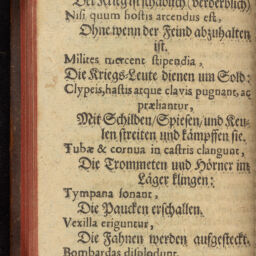 Der Krieg ist schädlich (verderblich)
Nisi quum hostis arcendus est,
Ohne wenn der Feind abzuhalten
ist.
Milites merent stipendia,
Die Kriegs-Leute dienen um Sold:
Clypeis, hastis atque clavis pugnant, ac
præliantur,
Mit Schilden/Spiesen/und Keu-
len streiten und kämpffen sie.
Tubæ & cornua in castris clangunt,
Die Trommeten und Hörner im
Läger klingen:
Tympana sonant,
Die Paucken erschallen.
Vexilla eriguntur,
Die Fahnen werden aufgesteckt.
Bombardas displodunt